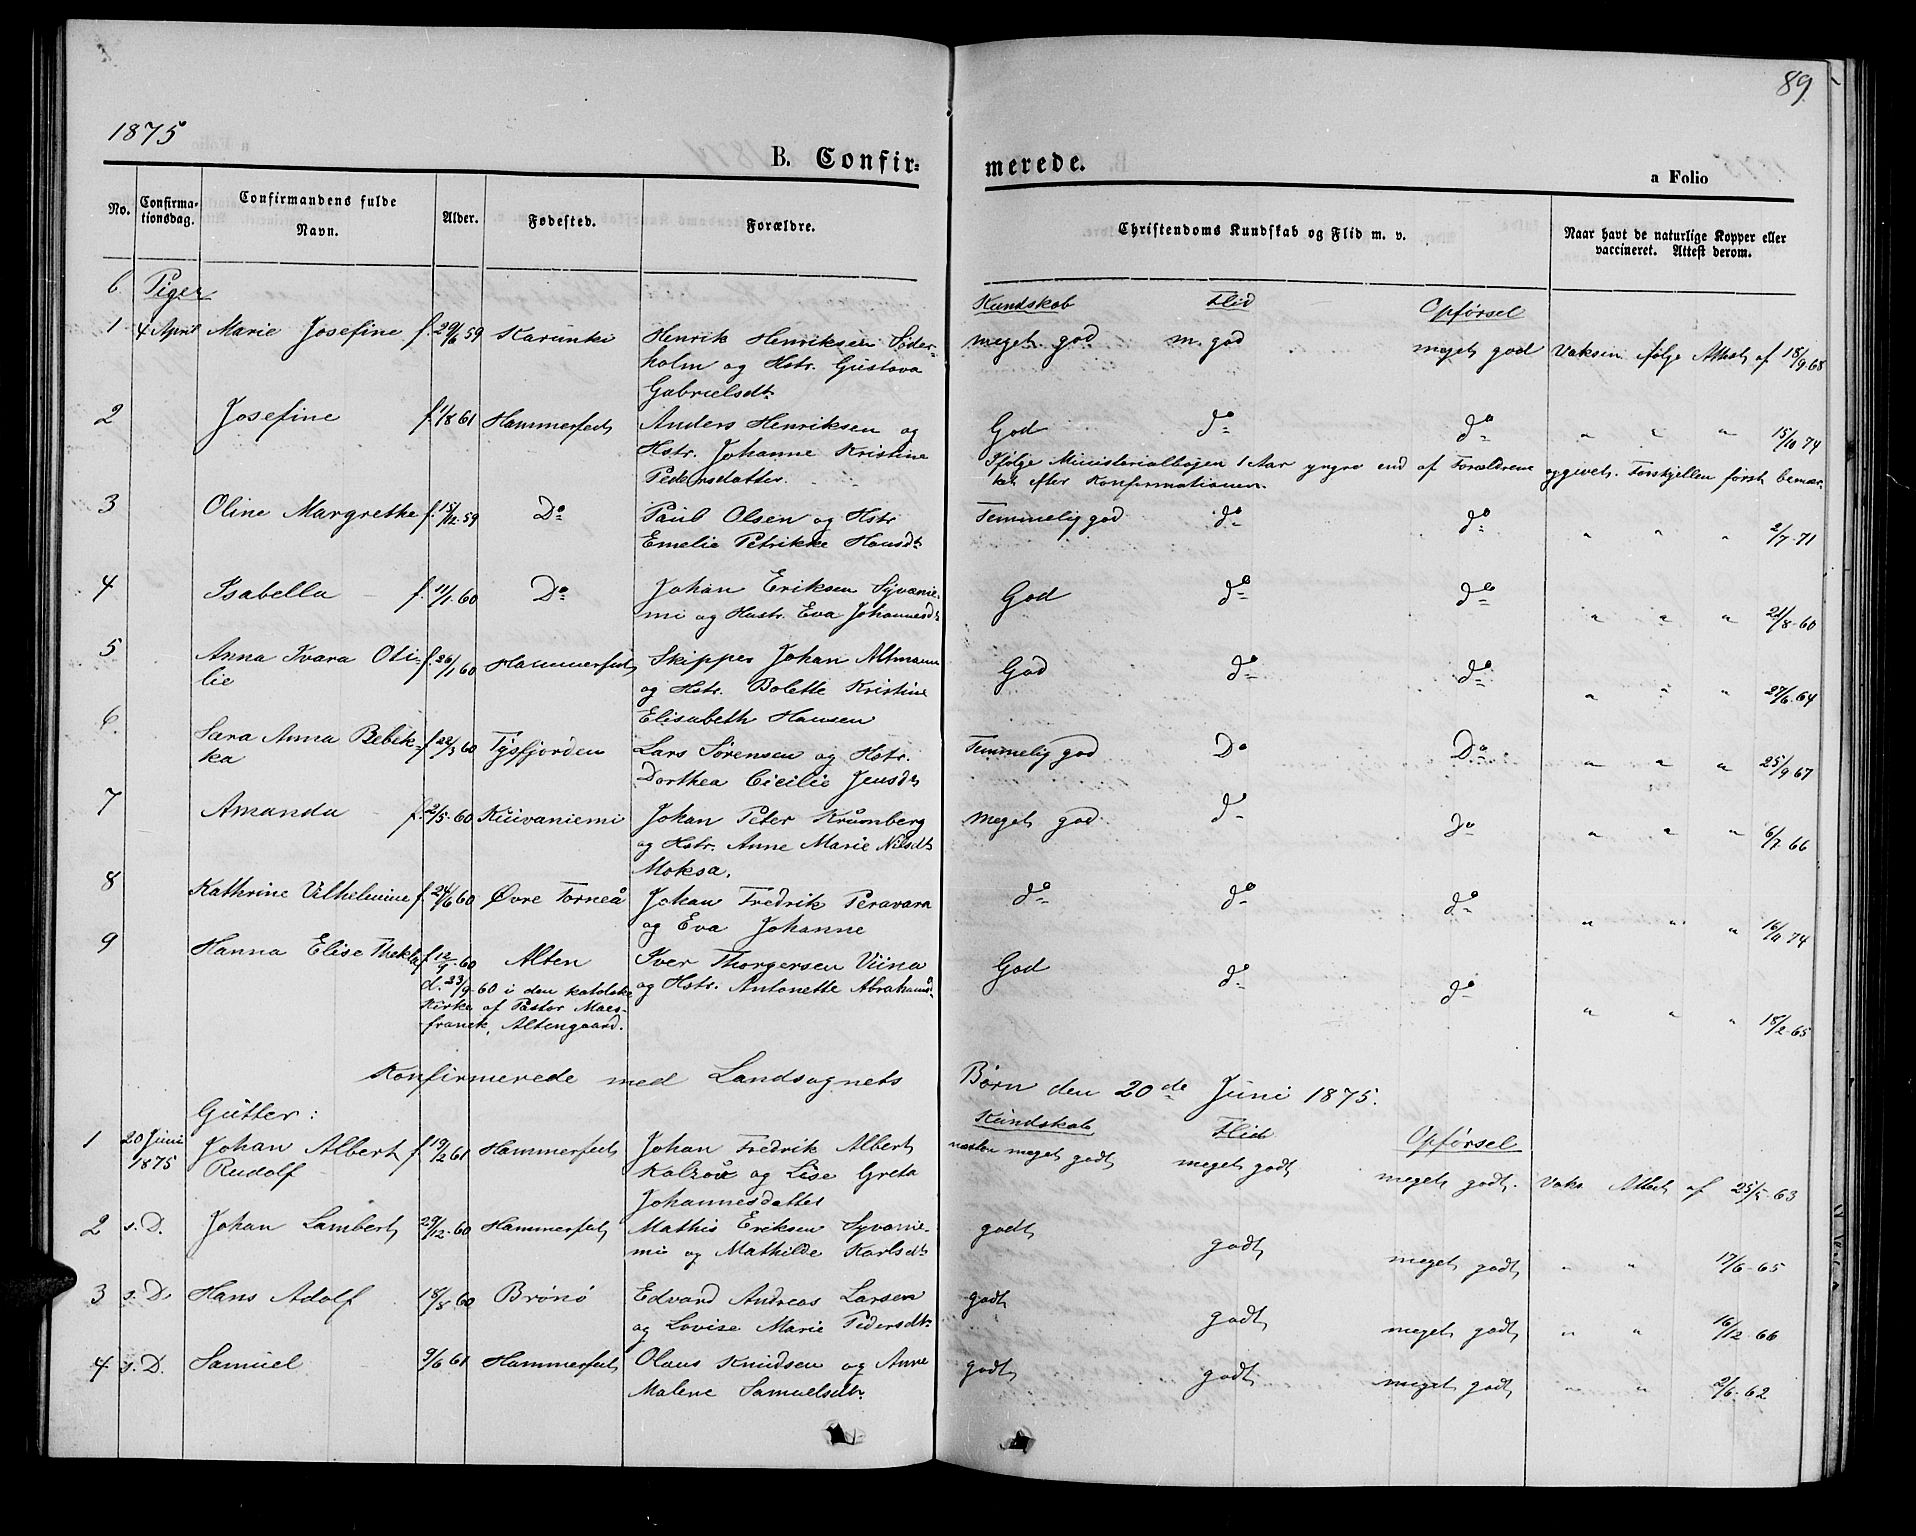 89.
1875
B. Confir=
merede.
a Folio
No.
Confirma-
tionsdag.
Confirmandens fulde
Navn.
Alder.
Fødested.
Forældre.
Christendoms Kundskab og Flid m. v.
Naar havt de naturlige Kopper eller
vaccineret. Attest derom.
6 Piger
Kundskab Flid Opførsel
1 4 April Marie Josefine f. 29/6 59 Karunki Henrik Henriksen Søder- meget god m. god meget god Vaksin ifølge Attest af 18/9 68
holm og Hstr. Gustava
Gabrielsdt.
2 Josefine f. 1/8 61 Hammerfest Anders Henriksen og God do do " " " 15/10 74
Hstr. Johanne Kristine Ifølge Ministerialbogen 1 Aar yngre end af Forældrene opgivet. Forskjellen først bemær-
Pedersdatter. ket efter Konfirmationen.
3 Oline Margrethe f. 15/12 59 Do Paul Olsen og Hstr Temmelig god do do " " " 2/7 71
Emelie Petrikke Hansdt.
4 Isabella f. 11/1 60 Do Johan Eriksen Syvænie- God do do " " " 21/8 60
mi og Hustr. Eva Johannesdt.
5 Anna Ivara Oti- f. 26/1 60 Hammerfest Skipper Johan Altmann God do do " " " 27/6 64
lie og Hstr. Bolette Kristine
Elisabeth Hansen
6. Sara Anna Bebek- f. 22/3 60 Tysfjorden Lars Sørensen og Hstr. Temmelig god Do Do " " " 25/9 67
ka Dorthea Cicilie Jensdt.
7 Amanda f. 2/5 60 Kuivaniemi Johan Peter Krumberg meget god do do " " " 6/7 66
og Hstr. Anne Marie Nilsdt.
Moksa.
8 Kathrine Vilhelmine f. 24/6 60 Øvre Torneå Johan Fredrik Peravara do do do " " " 74
og Eva Johanne
9 Hanna Elise Thekla f. 12/9 60 Alten Iver Thorgersen Viina God do do " " " 18/2 65
d. 23/9 60 i den katolske og Hstr. Antonette Abrahamsd.
Kirke af Pastor Maes-
franck, Altengaard.
Konfirmerede med Landsognets Børn den 20de Juni 1875.
Gutter:
Kundskab Flid Opførsel
1 20 Juni Johan Albert f. 19/2 61 Hammerfest Johan Fredrik Albert næsten meget godt meget godt meget godt. Vaks. Attest af 25/5 63
1875 Rudolf Kalzow og Lise Greta
Johannesdatter
2 s. D. Johan Lambert 29/12 60 Hammerfest Mathis Eriksen Syvanie- godt godt meget godt " " 17/6 65
mi og Mathilde Karlsdt.
3 s. D. Hans Adolf 18/8 60 Brønø Edvard Andreas Larsen godt godt meget godt " " 16/12 66
og Lovise Marie Pedersdt.
4 s. D. Samuel 9/6 61 Hammerfest Olaus Knudsen og Anne godt godt meget godt " " 2/6 62
Malene Samuelsdtr.